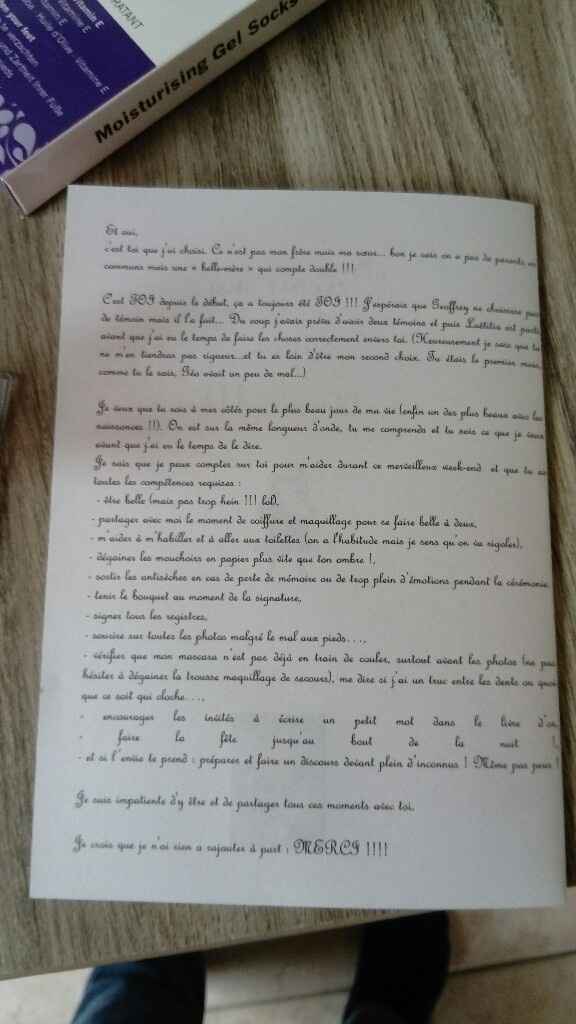 RATANT
Vitamin E
Vitamine E
Huile d'Olive - Vitamine E
your feet
und Zärtheit Ihrer Füße
Moisturising Gel Socks
Et oui,
c'est toi que j'ai choisi. Ce n'est pas mon frère mais ma sœur... bon je sais on a pas de parents en
communs mais une « belle-mère » qui compte double !!!
C'est TOI depuis le début, ça a toujours été TOI !!! J'espérais que Geoffrey ne choisisse pas
de témoin mais il l'a fait... Du coup j'avais prévu d'avoir deux témoins et puis Laëtitia est partie
avant que j'ai eu le temps de faire les choses correctement envers toi. (Heureusement je sais que tu
ne m'en tiendras pas rigueur...et tu es loin d'être mon second choix. Tu étais le premier mais,
comme tu le sais, Géo avait un peu de mal...)
Je veux que tu sois à mes côtés pour le plus beau jour de ma vie (enfin un des plus beaux avec les
naissances !!!). On est sur la même longueur d'onde, tu me comprends et tu sais ce que je veux
avant que j'ai eu le temps de le dire.
Je sais que je peux compter sur toi pour m'aider durant ce merveilleux week-end et que tu as
toutes les compétences requises :
- être belle (mais pas trop hein !!! lol),
- partager avec moi le moment de coiffure et maquillage pour se faire belle à deux,
- m'aider à m'habiller et à aller aux toilettes (on a l'habitude mais je sens qu'on va rigoler),
- dégainer les mouchoirs en papier plus vite que ton ombre !,
- sortir les antisèches en cas de perte de mémoire ou de trop plein d'émotions pendant la cérémonie,
- tenir le bouquet au moment de la signature,
- signer tous les registres,
- sourire sur toutes les photos malgré le mal aux pieds...,
- vérifier que mon mascara n'est pas déjà en train de couler, surtout avant les photos (ne pas
hésiter à dégainer la trousse maquillage de secours), me dire si j'ai un truc entre les dents ou quoi
que ce soit qui cloche...,
- encourager les invités à écrire un petit mot dans le livre d'or,
- faire la fête jusqu'au bout de la nuit !,
- et si l'envie te prend : préparer et faire un discours devant plein d'inconnus ! Même pas peur !
Je suis impatiente d'y être et de partager tous ces moments avec toi.
Je crois que je n'ai rien a rajouter à part : MERCI !!!!